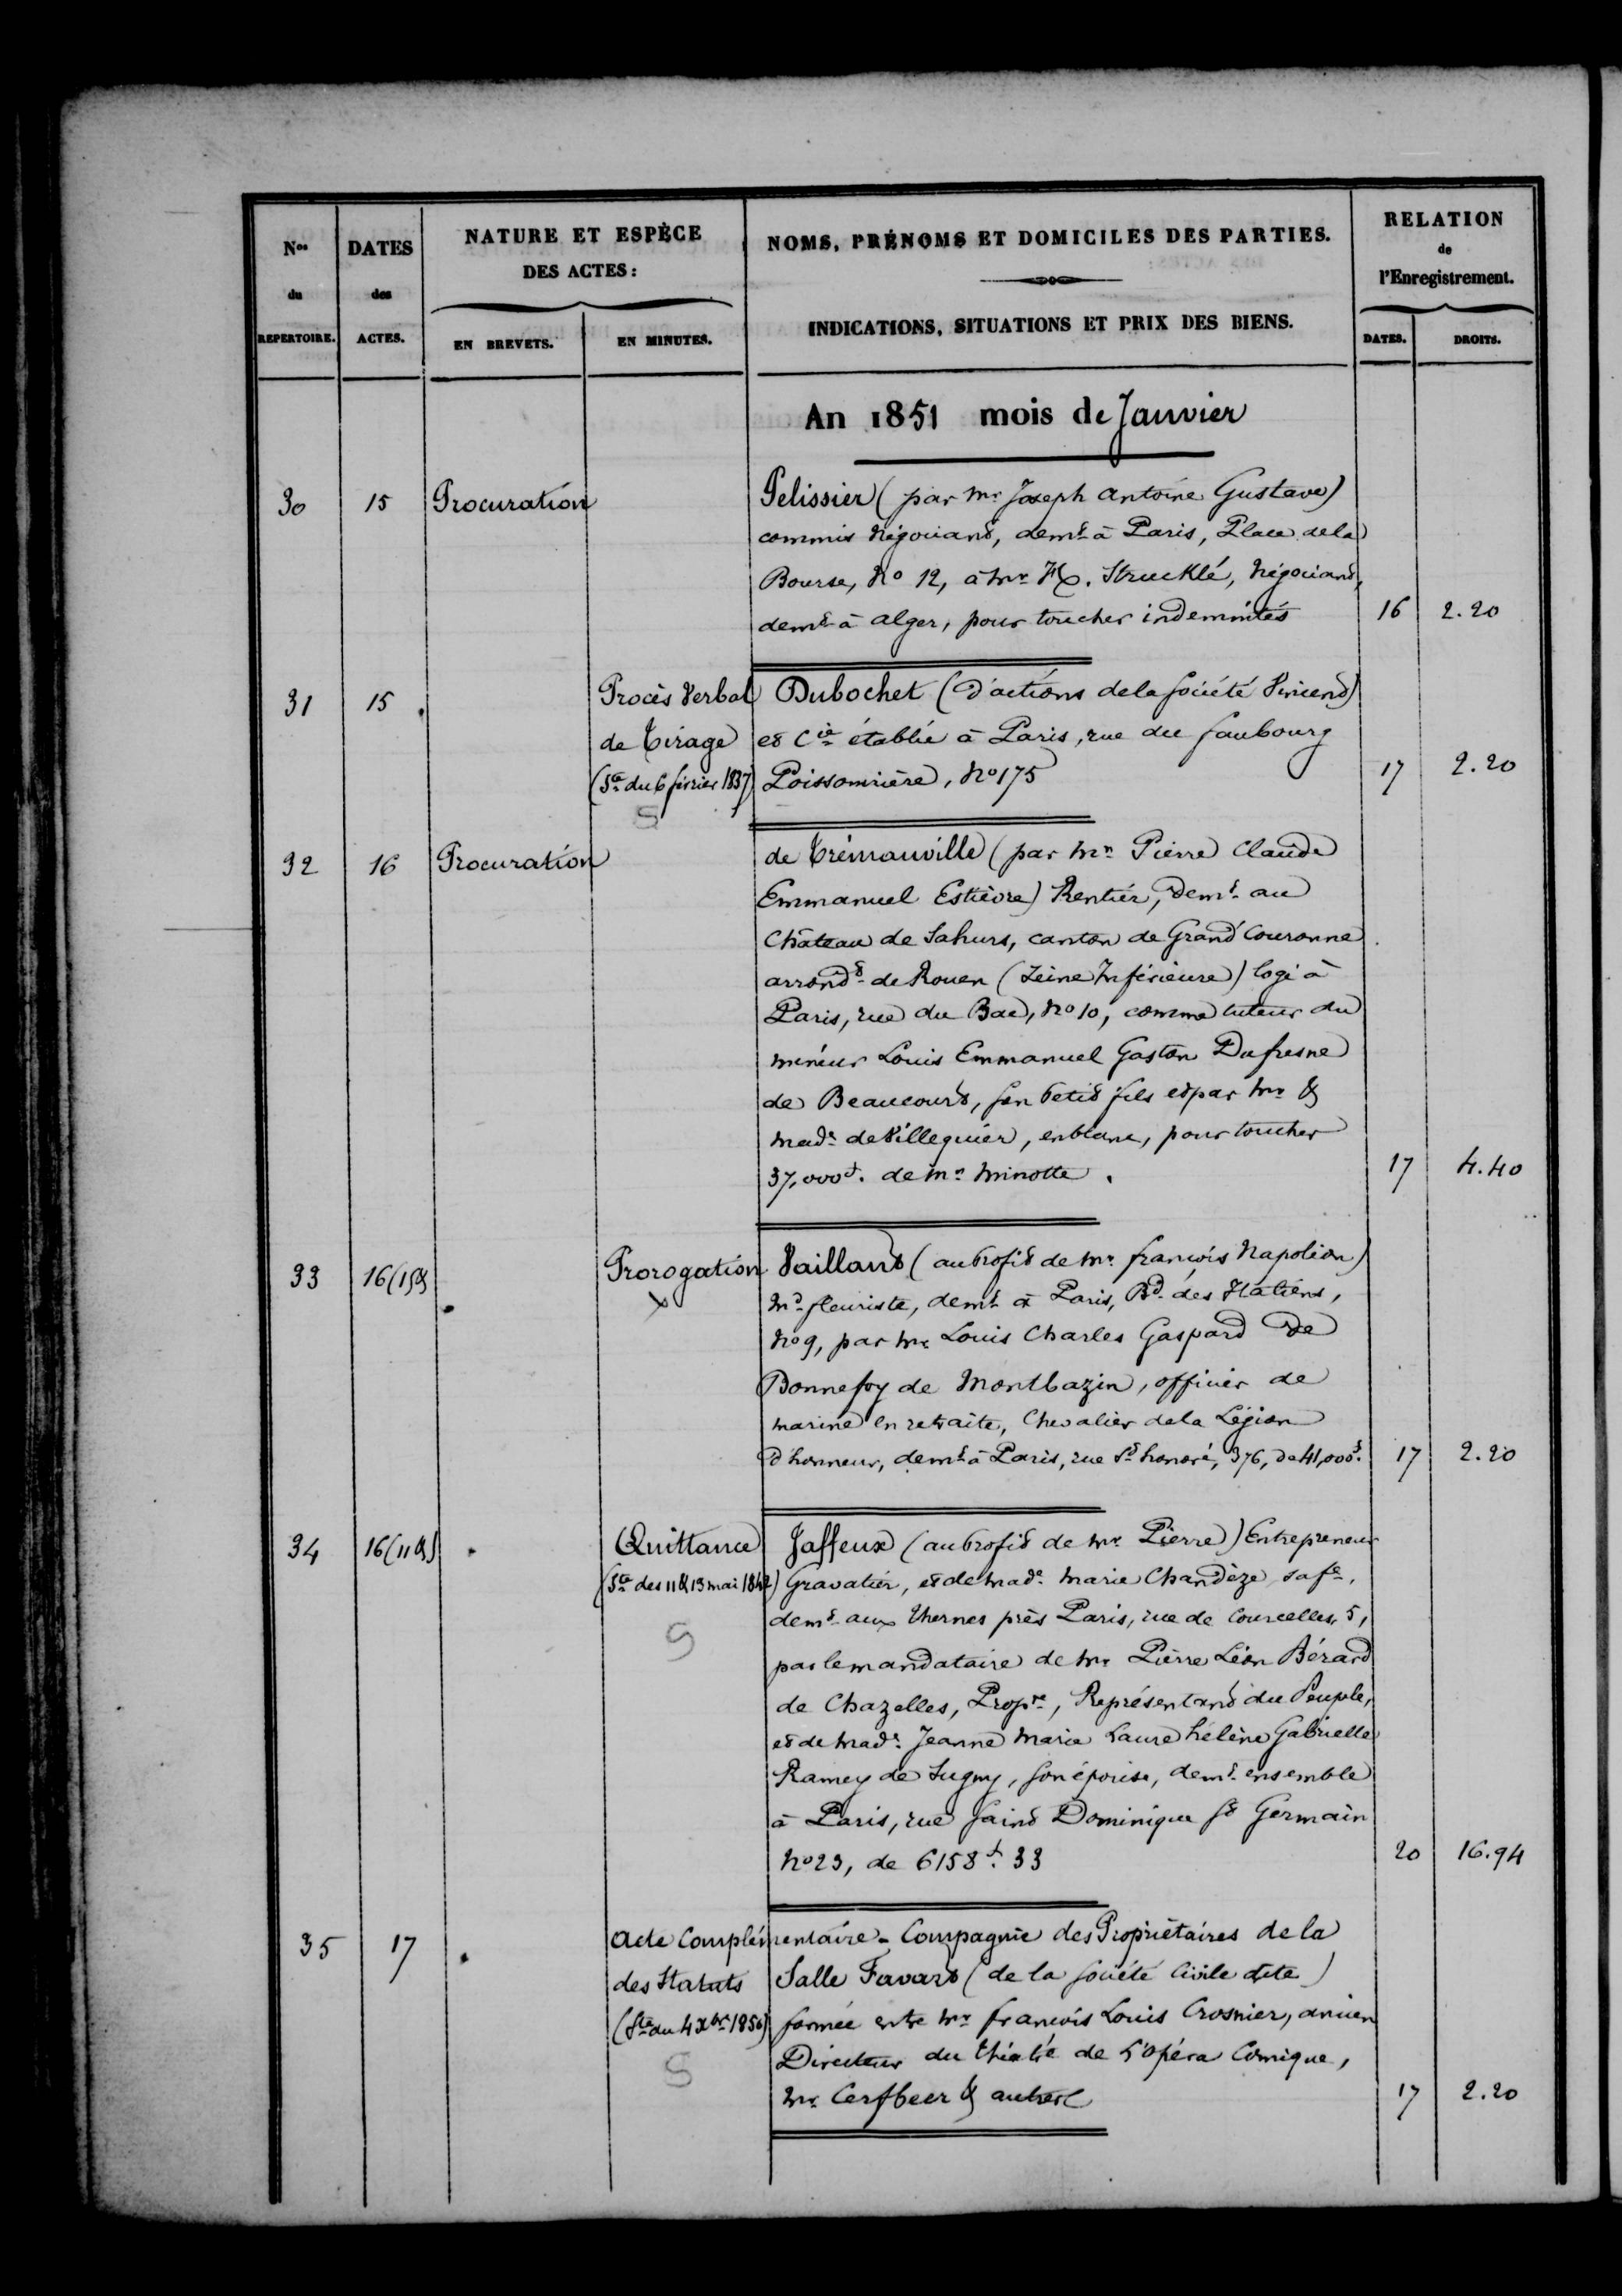 Nos du REPERTOIRE.
DATES des ACTES.
NATURE ET ESPÈCE DES ACTES:
EN BREVETS.
EN MINUTES.
NOMS, PRÉNOMS ET DOMICILES DES PARTIES.
INDICATIONS, SITUATIONS ET PRIX DES BIENS.
RELATION de l'Enregistrement.
DATES.
DROITS.
An 1851 mois de Janvier
30 15 Procuration Pelissier (par Mr Joseph Antoine Gustave)
commis Négociant, demt à Paris, Place de la
Bourse, No 12, à Mr Strucklé, Négociant,
demt à Alger, pour toucher indemnités 16 2.20
31 15 Procès Verbal Dubochet (d'actions de la Société Vincent)
de tirage et Cie établie à Paris, rue du faubourg
(Ste du 6 février 1837) Poissonnière, No 175 17 2.20
S
32 16 Procuration de Trémauville (par Mr Pierre Claude
Emmanuel Estièvre) Rentier, demt au
Château de Sahurs, canton de Grand Couronne
arrondt de Rouen (Seine Inférieure) logé à
Paris, rue du Bac, No 10, comme tuteur du
mineur Louis Emmanuel Gaston Dufresne
de Beaucourt, son petit fils et par Mr &
made de Villequier, en blanc, pour toucher
37,000f. de Mr Minotte. 17 4.40
33 16 (15 & Prorogation Vaillant (au profit de Mr françois Napoléon)
x Md fleuriste, demt à Paris, Bd des Italiens,
No 9, par Mr Louis Charles Gaspard de
Bonnefoy de Montbazin, officier de
marine en retraite, Chevalier de la Légion
d'honneur, demt à Paris, rue St honoré, 376, de 41,000f. 17 2.20
34 16 (11 &) Quittance Jaffeux (au profit de Mr Pierre) Entrepreneur
(Ste des 11 & 13 mai 1842) Gravatier, et de made Marie Chandèze, sa fe,
demt aux Thernes près Paris, rue de Courcelles, 5,
S par le mandataire de Mr Pierre Léon Bérard
de Chazelles, Propre, Représentant du Peuple,
et de made Jeanne Marie Laure hélène Gabrielle
Ramey de Sugny, son épouse, demt ensemble
à Paris, rue Saint Dominique St Germain
No 23, de 6158f. 33 20 16.94
35 17 Acte Complémentaire - Compagnie des Propriétaires de la
des Statuts Salle Favart (de la Société Civile dite)
(Ste du 4 xbre 1850) formée entre Mr françois Louis Crosnier, ancien
S Directeur du théâtre de l'Opéra Comique,
Mr Cerfbeer & autres 17 2.20